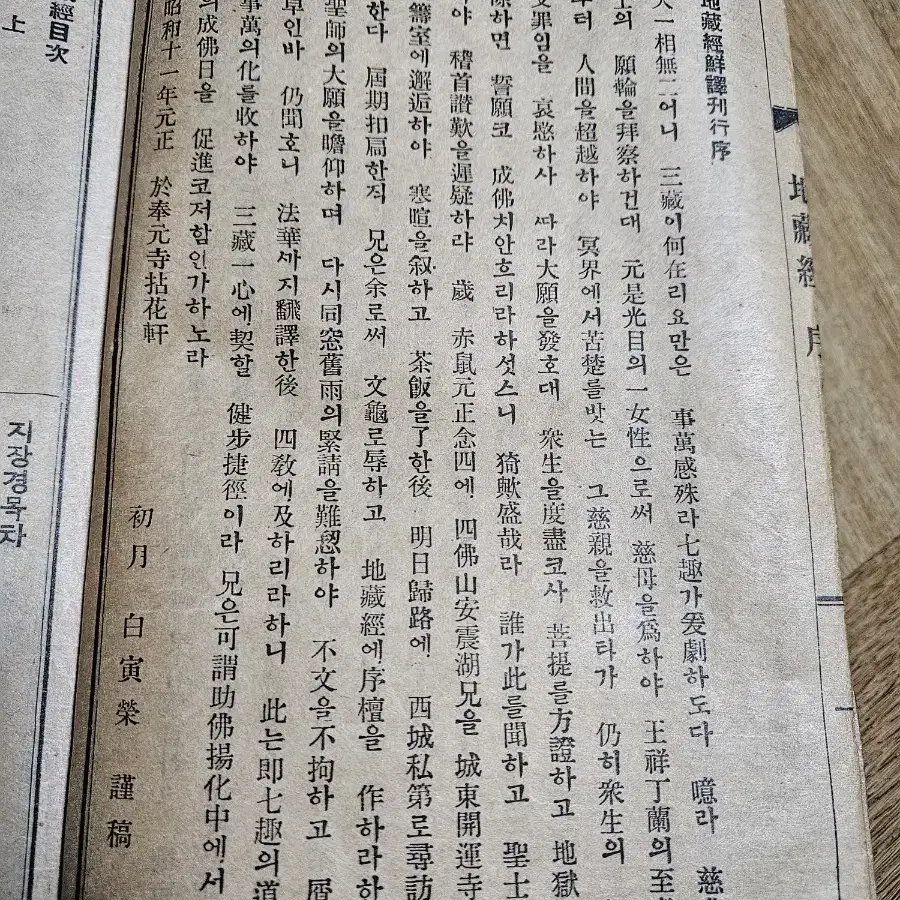 地藏經 序
地藏經鮮譯刊行序
一相無二어니 三藏이何在리요만은 事萬感殊라七趣가爰劇하도다 噫라 慈
의 願輪을拜察하건대 元是光目의一女性으로써 慈母을爲하야 王祥丁蘭의至
터 人間을超越하야 冥界에서苦楚를밧는 그慈親을救出타가 仍히衆生의
罪임을 哀愍하사 따라大願을發호대 衆生을度盡코사 菩提를方證하고 地獄
하면 誓願코 成佛치안흐리라하섯스니 猗歟盛哉라 誰가此를聞하고 聖士
야 稽首讚歎을遲疑하랴 歲 赤鼠元正念四에 四佛山安震湖兄을 城東開運寺
籌室에邂逅하야 寒暄을叙하고 茶飯을了한後 明日歸路에 西城私第로尋訪
한다 屆期扣扃한직 兄은余로써 文龜로辱하고 地藏經에序檀을 作하라하
聖師의大願을瞻仰하며 다시同窓舊雨의緊請을難恝하야 不文을不拘하고 屑
草인바 仍聞호니 法華까지飜譯한後 四敎에及하리라하니 此는即七趣의道
事萬의化를收하야 三藏一心에契할 健步捷徑이라 兄은可謂助佛揚化中에서
의成佛日을 促進코저함인가하노라
昭和十一年元正 於奉元寺拈花軒
初月 白寅榮 謹稿
經目次
上
지장경목차